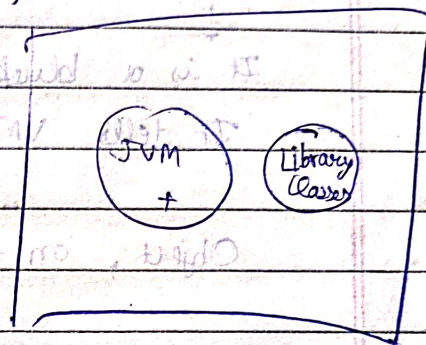 JVM
+
Library
Classes